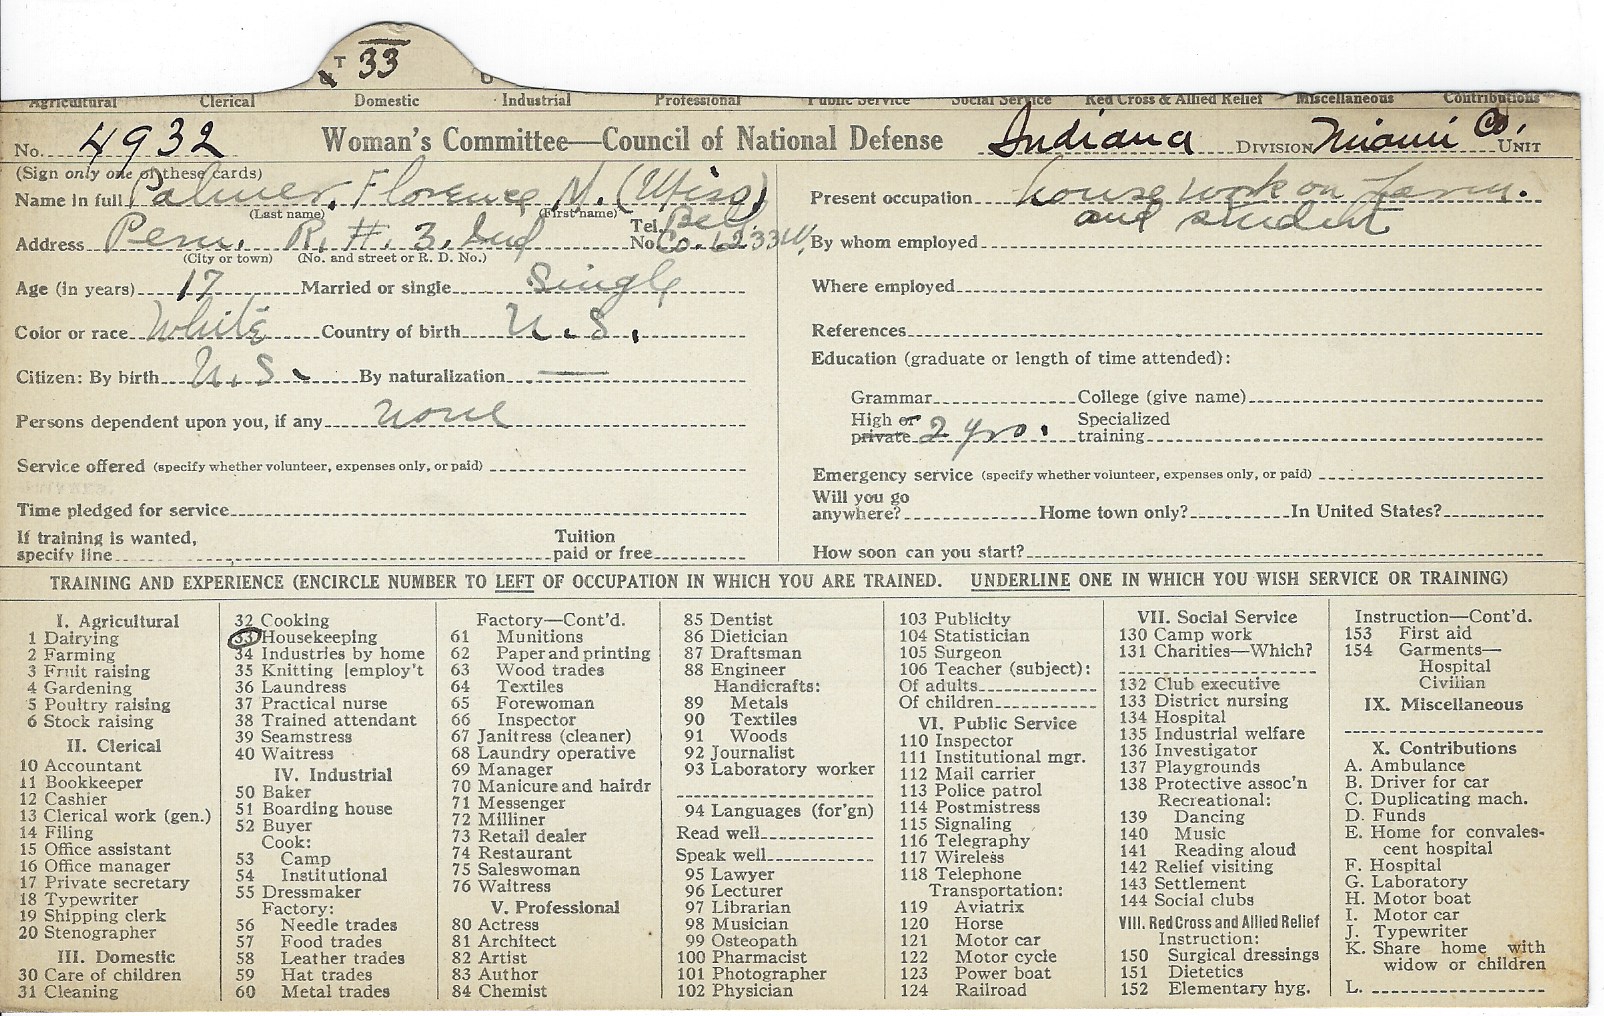 T 33
Agricultural Clerical Domestic Industrial Professional Public Service Social Service Red Cross & Allied Relief Miscellaneous Contributions
No. 4932 Woman's Committee—Council of National Defense Indiana DIVISION Miami Co. UNIT
(Sign only one of these cards)
Name in full Palmer, Florence M. (Miss)
(Last name) (First name)
Address Peru, R. #. 3. Ind Tel. No. Bell Co. 1233W.
(City or town) (No. and street or R. D. No.)
Age (in years) 17 Married or single Single
Color or race White Country of birth U. S.
Citizen: By birth U. S. By naturalization —
Persons dependent upon you, if any none
Service offered (specify whether volunteer, expenses only, or paid)
Time pledged for service
If training is wanted,
specify line Tuition paid or free
Present occupation house work on farm.
and student
By whom employed
Where employed
References
Education (graduate or length of time attended):
Grammar College (give name)
High or private 2 yrs. Specialized training
Emergency service (specify whether volunteer, expenses only, or paid)
Will you go
anywhere? Home town only? In United States?
How soon can you start?
TRAINING AND EXPERIENCE (ENCIRCLE NUMBER TO LEFT OF OCCUPATION IN WHICH YOU ARE TRAINED. UNDERLINE ONE IN WHICH YOU WISH SERVICE OR TRAINING)
I. Agricultural
1 Dairying
2 Farming
3 Fruit raising
4 Gardening
5 Poultry raising
6 Stock raising
II. Clerical
10 Accountant
11 Bookkeeper
12 Cashier
13 Clerical work (gen.)
14 Filing
15 Office assistant
16 Office manager
17 Private secretary
18 Typewriter
19 Shipping clerk
20 Stenographer
III. Domestic
30 Care of children
31 Cleaning
32 Cooking
33 Housekeeping
34 Industries by home
35 Knitting [employ't
36 Laundress
37 Practical nurse
38 Trained attendant
39 Seamstress
40 Waitress
IV. Industrial
50 Baker
51 Boarding house
52 Buyer
Cook:
53 Camp
54 Institutional
55 Dressmaker
Factory:
56 Needle trades
57 Food trades
58 Leather trades
59 Hat trades
60 Metal trades
Factory—Cont'd.
61 Munitions
62 Paper and printing
63 Wood trades
64 Textiles
65 Forewoman
66 Inspector
67 Janitress (cleaner)
68 Laundry operative
69 Manager
70 Manicure and hairdr
71 Messenger
72 Milliner
73 Retail dealer
74 Restaurant
75 Saleswoman
76 Waitress
V. Professional
80 Actress
81 Architect
82 Artist
83 Author
84 Chemist
85 Dentist
86 Dietician
87 Draftsman
88 Engineer
Handicrafts:
89 Metals
90 Textiles
91 Woods
92 Journalist
93 Laboratory worker
94 Languages (for'gn)
Read well
Speak well
95 Lawyer
96 Lecturer
97 Librarian
98 Musician
99 Osteopath
100 Pharmacist
101 Photographer
102 Physician
103 Publicity
104 Statistician
105 Surgeon
106 Teacher (subject):
Of adults
Of children
VI. Public Service
110 Inspector
111 Institutional mgr.
112 Mail carrier
113 Police patrol
114 Postmistress
115 Signaling
116 Telegraphy
117 Wireless
118 Telephone
Transportation:
119 Aviatrix
120 Horse
121 Motor car
122 Motor cycle
123 Power boat
124 Railroad
VII. Social Service
130 Camp work
131 Charities—Which?
132 Club executive
133 District nursing
134 Hospital
135 Industrial welfare
136 Investigator
137 Playgrounds
138 Protective assoc'n
Recreational:
139 Dancing
140 Music
141 Reading aloud
142 Relief visiting
143 Settlement
144 Social clubs
VIII. Red Cross and Allied Relief
Instruction:
150 Surgical dressings
151 Dietetics
152 Elementary hyg.
Instruction—Cont'd.
153 First aid
154 Garments—
Hospital
Civilian
IX. Miscellaneous
X. Contributions
A. Ambulance
B. Driver for car
C. Duplicating mach.
D. Funds
E. Home for convales-
cent hospital
F. Hospital
G. Laboratory
H. Motor boat
I. Motor car
J. Typewriter
K. Share home with
widow or children
L.